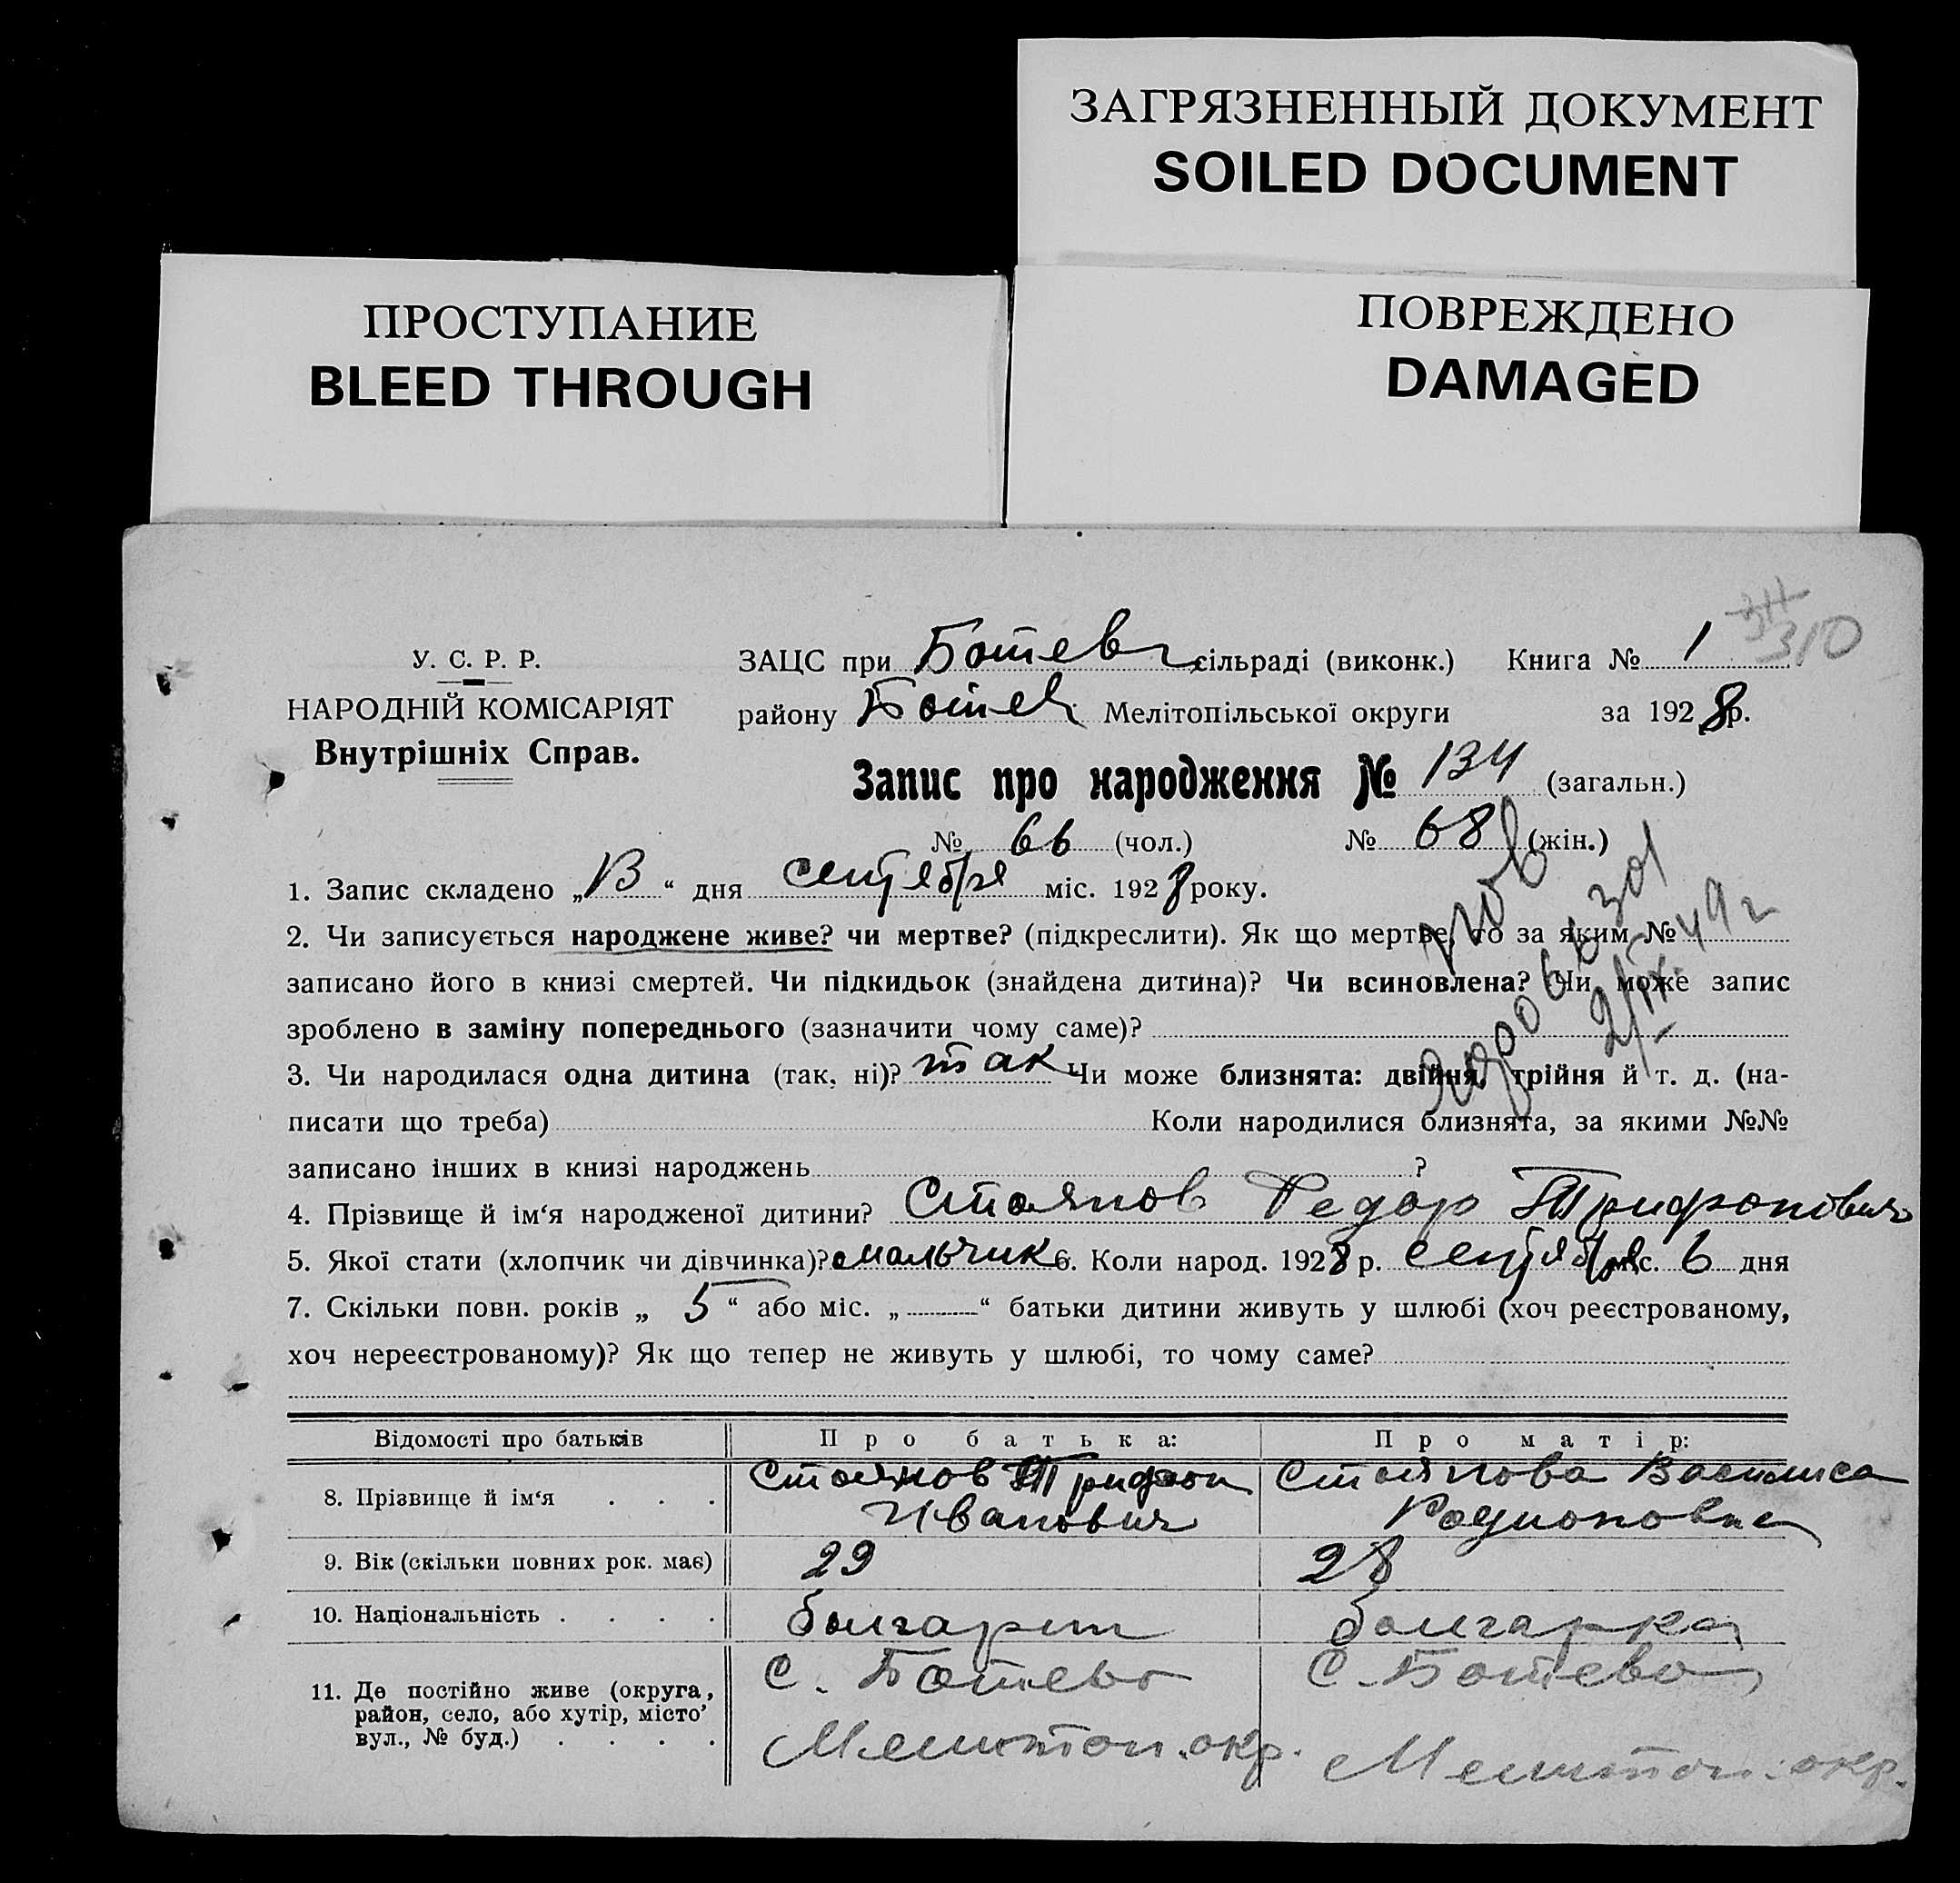 ЗАГРЯЗНЕННЫЙ ДОКУМЕНТ
SOILED DOCUMENT
ПРОСТУПАНИЕ
BLEED THROUGH
ПОВРЕЖДЕНО
DAMAGED
310
У. С. Р. Р.
НАРОДНІЙ КОМІСАРІЯТ
Внутрішніх Справ.
ЗАЦС при Ботевг сільраді (виконк.) Книга № 1
району Ботев Мелітопільської округи за 1928 р.
Запис про народження № 134 (загальн.)
№ 66 (чол.) № 68 (жін.)
1. Запис складено „ “ дня сентября міс. 1928 року.
2. Чи записується народжене живе? чи мертве? (підкреслити). Як що мертве, то за яким №
записано його в книзі смертей. Чи підкидьок (знайдена дитина)? Чи всиновлена? Чи може запис
зроблено в заміну попереднього (зазначити чому саме)?
3. Чи народилася одна дитина (так, ні)? так Чи може близнята: двійня, трійня й т. д. (на-
писати що треба) Коли народилися близнята, за якими №№
записано інших в книзі народжень ?
4. Прізвище й ім‘я народженої дитини? Стоянов Федор Трифонович
5. Якої стати (хлопчик чи дівчинка)? мальчик 6. Коли народ. 1928 р. сентября міс. 6 дня
7. Скільки повн. років „ 5 “ або міс. „ “ батьки дитини живуть у шлюбі (хоч реєстрованому,
хоч нереєстрованому)? Як що тепер не живуть у шлюбі, то чому саме?
Відомості про батьків Про батька: Про матір:
8. Прізвище й ім‘я . . . Стоянов Трифон Иванович Стоянова Василиса Родионовна
9. Вік (скільки повних рок. має) 29 28
10. Національність . . . . болгарин болгарка
11. Де постійно живе (округа, район, село, або хутір, місто вул., № буд.) . . . . С. Ботево Мелитоп. окр. С. Ботево Мелитоп. окр.